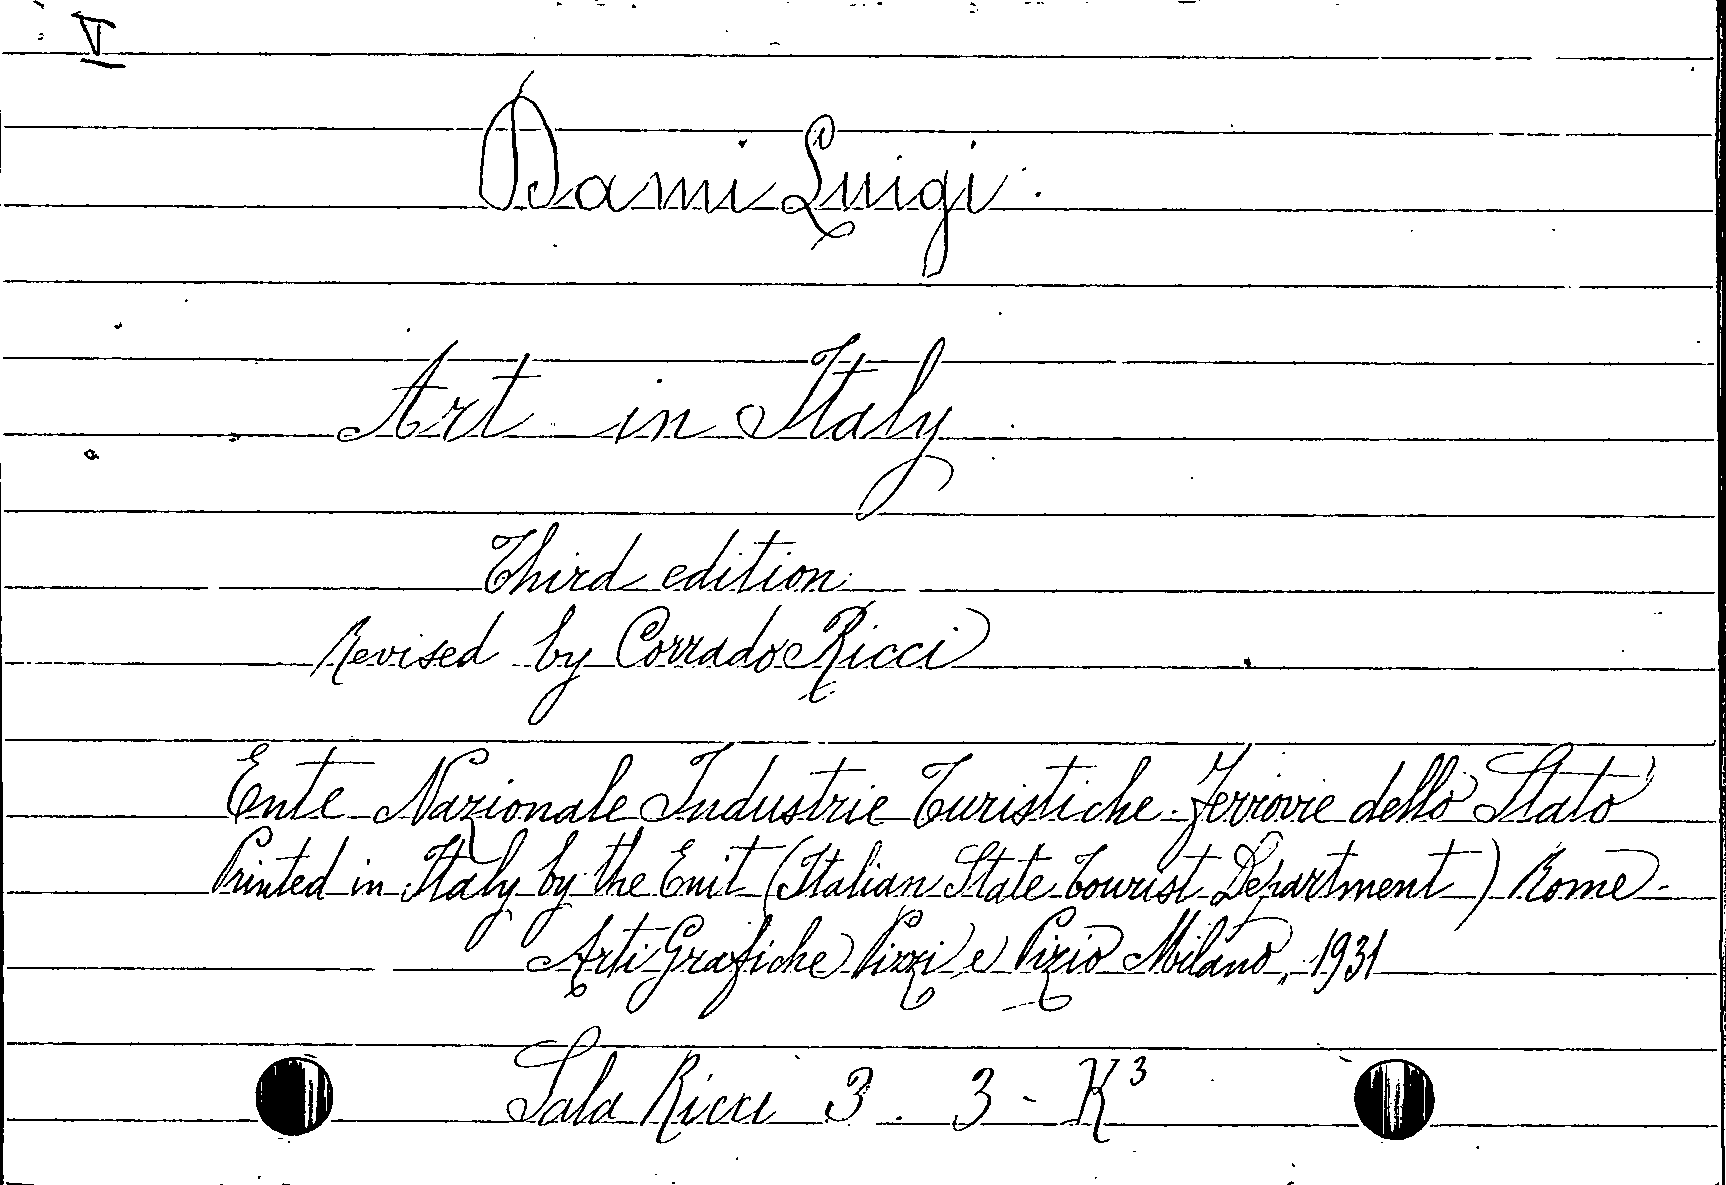 V
Dami Luigi.
Art in Italy
Third edition
Revised by Corrado Ricci
Ente Nazionale Industrie Turistiche Ferrovie dello Stato
Printed in Italy by the Enit (Italian State Tourist Department) Rome-
Arti Grafiche Pizzi e Pizio Milano, 1931
Sala Ricci 3. 3 - K³